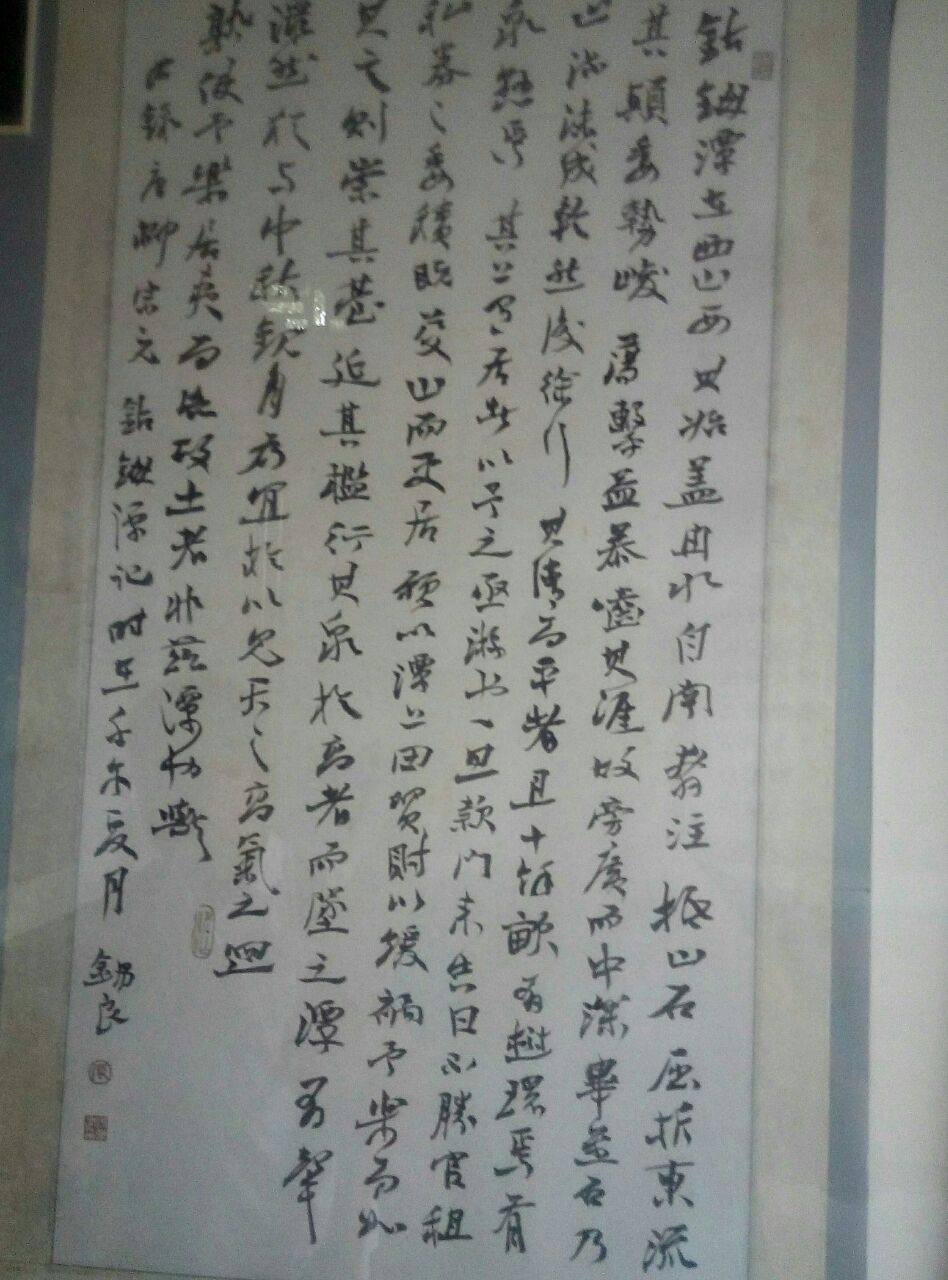 钴鉧潭在西山西其始盖冉水自南奔注抵山石屈折東流
其顛委勢峻蕩擊益暴嚙其涯故旁廣而中深畢至石乃
止流沫成輪然後徐行其清而平者且十餘畝有樹環焉有
泉懸焉其上有居者以予之亟游也一旦款門來告曰不勝官租
私券之委積既芟山而更居願以潭上田貿財以緩禍予樂而如
其言則崇其臺延其檻行其泉於高者而墜之潭有聲
潀然於与中秋觀月為宜於以見天之高氣之迥
孰使予樂居夷而忘故土者非茲潭也歟
右録唐柳宗元鈷鉧潭記時在夏月